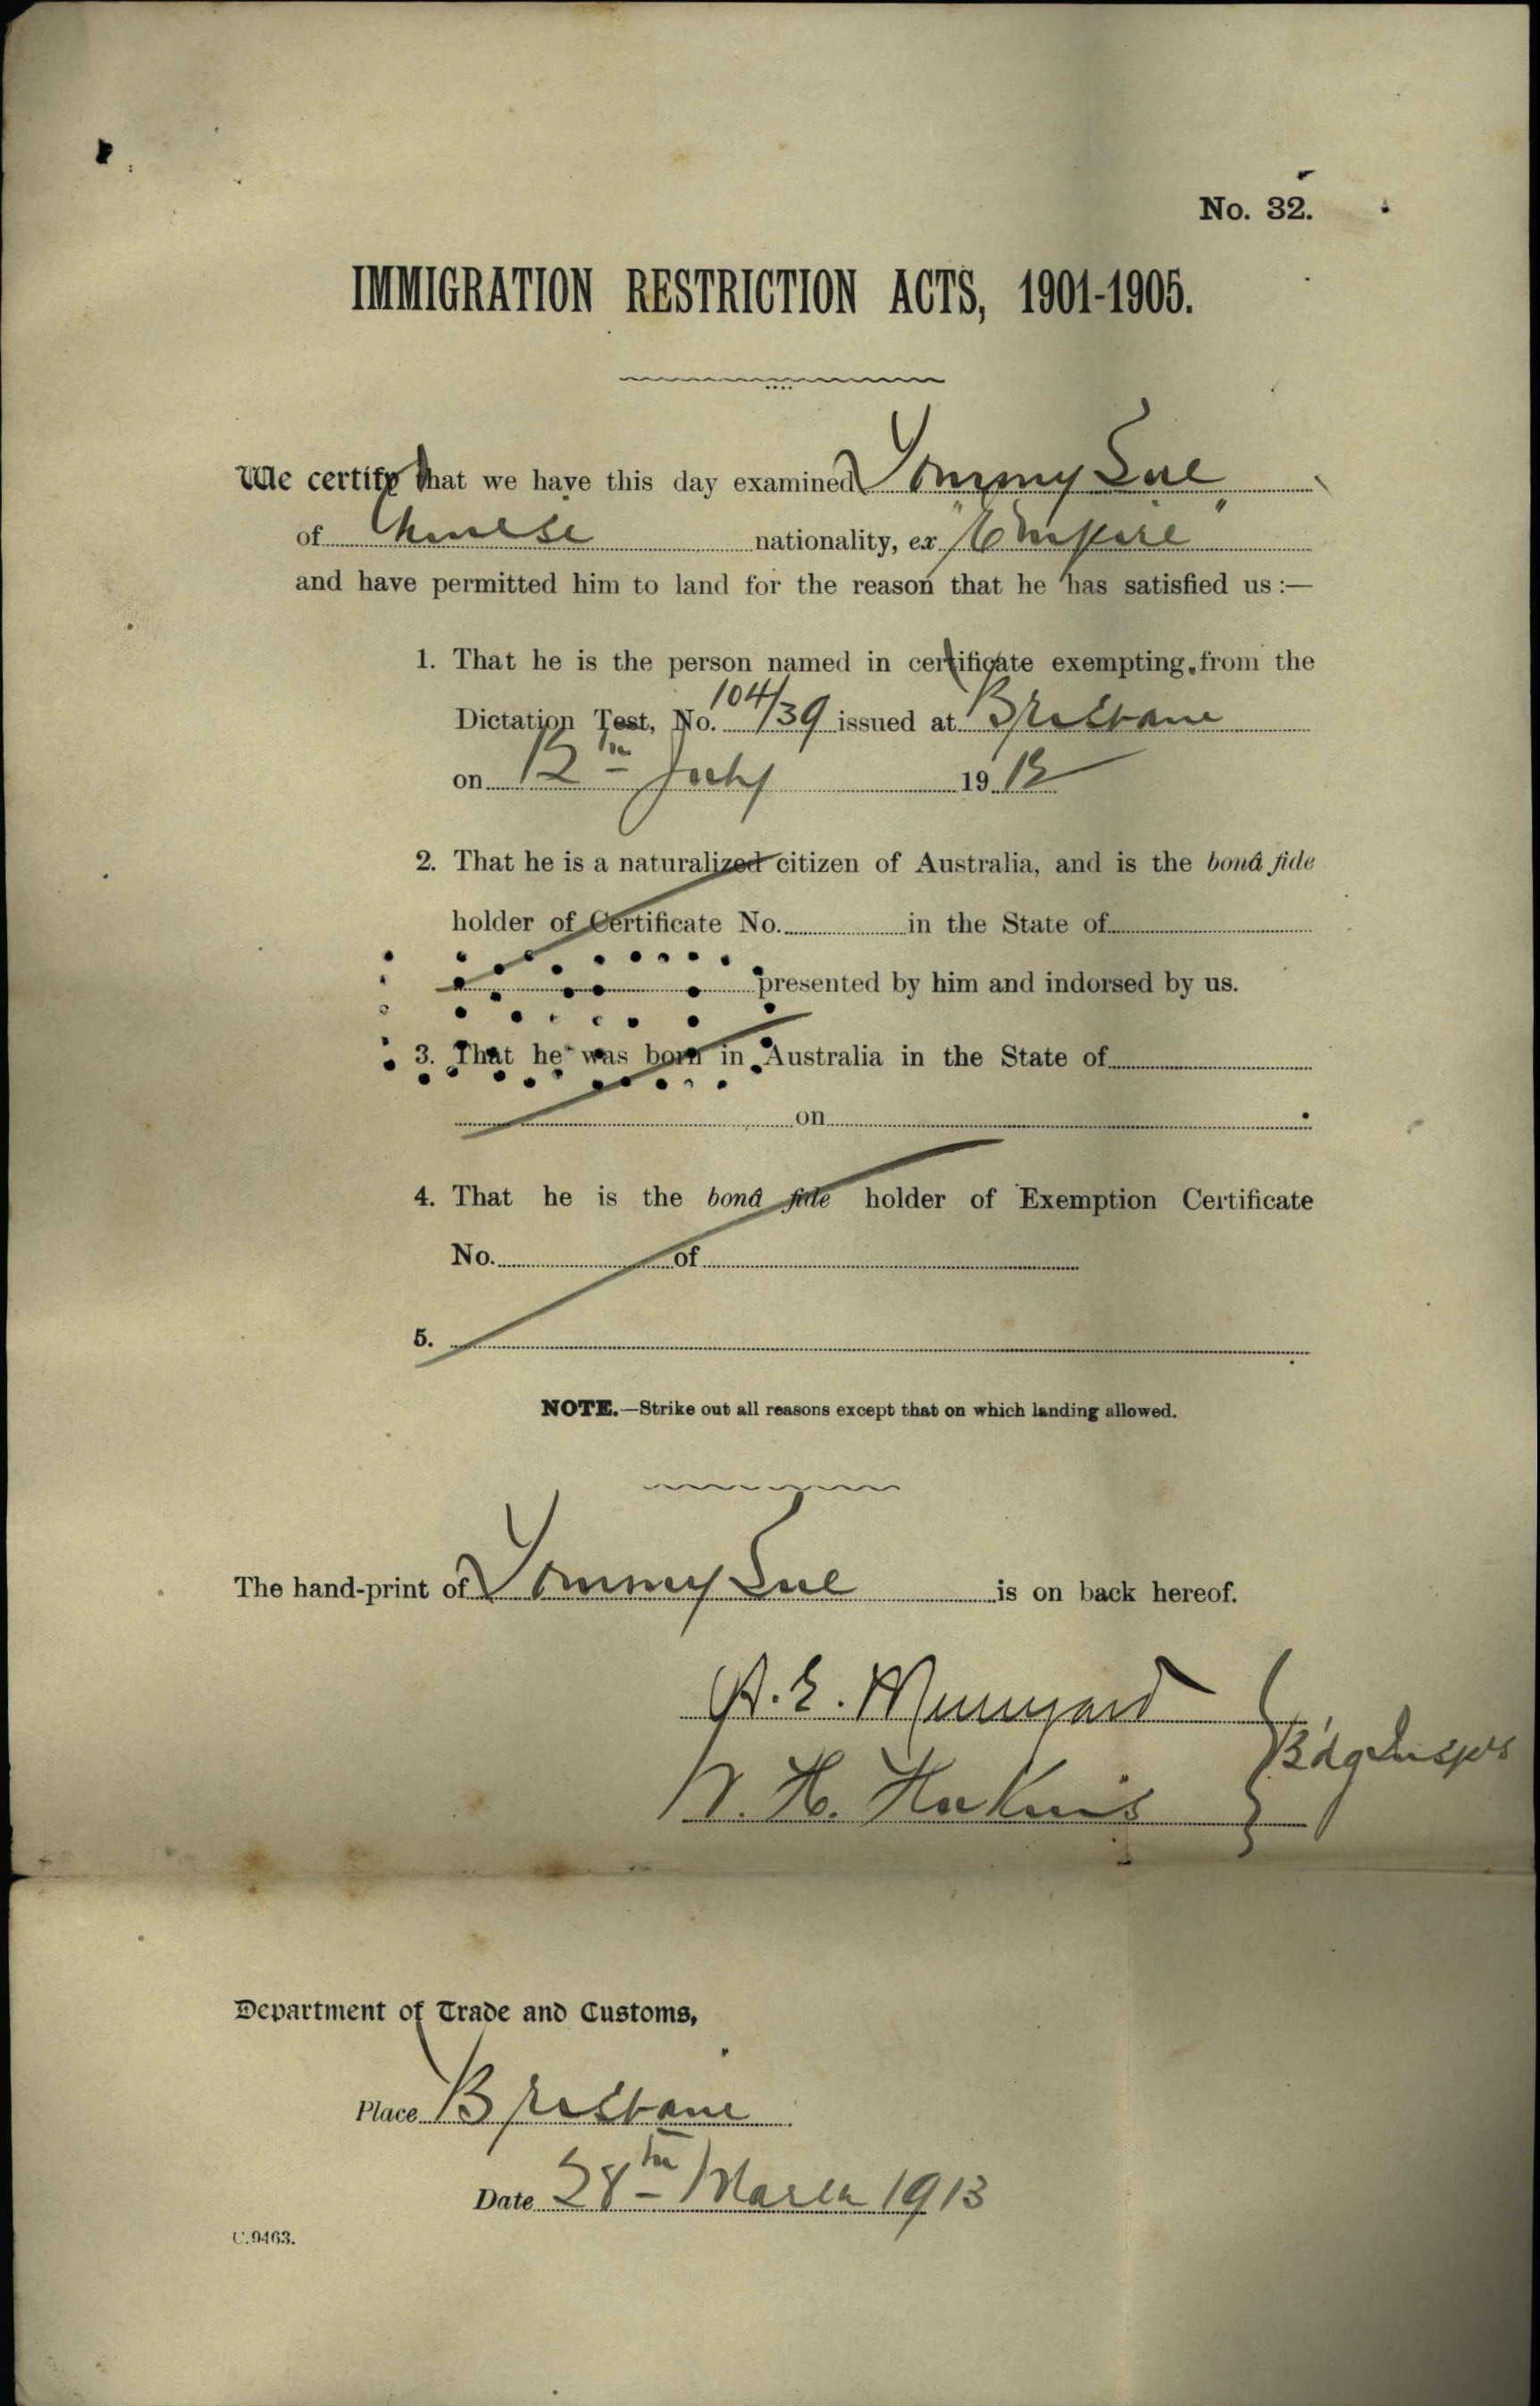 No. 32.
IMMIGRATION RESTRICTION ACTS, 1901-1905.
We certify that we have this day examined Tommy Sue
of Chinese nationality, ex "Empire"
and have permitted him to land for the reason that he has satisfied us :—
1. That he is the person named in certificate exempting from the
Dictation Test, No. 104/39 issued at Brisbane
on 12th July 1912
2. That he is a naturalized citizen of Australia, and is the bonâ fide
holder of Certificate No. in the State of
presented by him and indorsed by us.
3. That he was born in Australia in the State of
on
4. That he is the bonâ fide holder of Exemption Certificate
No. of
5.
NOTE.—Strike out all reasons except that on which landing allowed.
The hand-print of Tommy Sue is on back hereof.
A. E.
Bdg Insprs
W. H. Hawkins
Department of Trade and Customs,
Place Brisbane
Date 28th March 1913
C.9463.